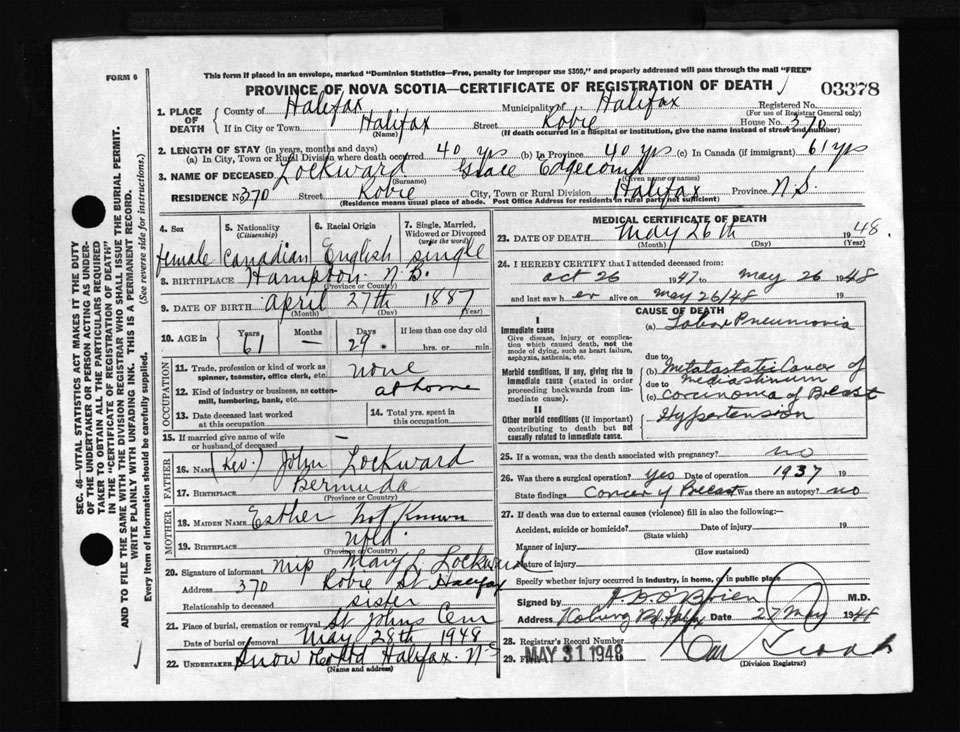 FORM 6
This form if placed in an envelope, marked "Dominion Statistics—Free, penalty for improper use $300," and properly addressed will pass through the mail "FREE"
PROVINCE OF NOVA SCOTIA—CERTIFICATE OF REGISTRATION OF DEATH
03378
1. PLACE OF DEATH
County of Halifax Municipality of Halifax Registered No.
(For use of Registrar General only)
If in City or Town Halifax Street Robie House No. 370
(Name) (If death occurred in a hospital or institution, give the name instead of street and number)
2. LENGTH OF STAY (in years, months and days)
(a) In City, Town or Rural Division where death occurred 40 yrs (b) In Province 40 yrs (c) In Canada (if immigrant) 61 yrs
3. NAME OF DECEASED Lockward Grace Edgecomb
(Surname) (Given name or names)
RESIDENCE No 370 Street Robie City, Town or Rural Division Halifax Province N.S.
(Residence means usual place of abode. Post Office Address for residents in rural parts not sufficient)
4. Sex
5. Nationality (Citizenship)
6. Racial Origin
7. Single, Married, Widowed or Divorced (write the word)
female Canadian English single
8. BIRTHPLACE Hampton N.B.
(Province or Country)
9. DATE OF BIRTH April 27th 1887
(Month) (Day) (Year)
10. AGE in Years Months Days If less than one day old
61 — 29 hrs. or min.
OCCUPATION
11. Trade, profession or kind of work as spinner, teamster, office clerk, etc. none
12. Kind of industry or business, as cotton-mill, lumbering, bank, etc. at home
13. Date deceased last worked at this occupation
14. Total yrs. spent in this occupation
15. If married give name of wife or husband of deceased —
FATHER
16. Name (Rev.) John Lockward
17. Birthplace Bermuda
(Province or Country)
MOTHER
18. Maiden Name Esther Not Known
19. Birthplace Nfld.
(Province or Country)
20. Signature of informant Miss Mary L Lockward
Address 370 Robie St Halifax
Relationship to deceased sister
21. Place of burial, cremation or removal St Johns Cem
Date of burial or removal May 28th 1948
22. Undertaker Snow Halifax N-S
(Name and address)
MEDICAL CERTIFICATE OF DEATH
23. DATE OF DEATH May 26th 1948
(Month) (Day) (Year)
24. I HEREBY CERTIFY that I attended deceased from:
Oct 26 1947 to May 26 1948
and last saw her alive on May 26/48 19
CAUSE OF DEATH
I
Immediate cause
Give disease, injury or complication which caused death, not the mode of dying, such as heart failure, asphyxia, asthenia, etc.
(a) Lobar Pneumonia
due to
Morbid conditions, if any, giving rise to immediate cause (stated in order proceeding backwards from immediate cause).
(b) Metastatic Cancer of Mediastinum
due to
(c) Carcinoma of Breast
II
Other morbid conditions (if important) contributing to death but not causally related to immediate cause.
Hypertension
25. If a woman, was the death associated with pregnancy? no
26. Was there a surgical operation? Yes Date of operation 1937 19
State findings Cancer of Breast Was there an autopsy? no
27. If death was due to external causes (violence) fill in also the following:—
Accident, suicide or homicide? Date of injury 19
(State which)
Manner of injury
(How sustained)
Nature of injury
Specify whether injury occurred in industry, in home, or in public place
Signed by O'Brien M.D.
Address Coburg Rd. Hfx Date 27 May 1948
28. Registrar's Record Number
29. MAY 31 1948
(Division Registrar)
SEC. 46—VITAL STATISTICS ACT MAKES IT THE DUTY
OF THE UNDERTAKER OR PERSON ACTING AS UNDER-
TAKER TO OBTAIN ALL THE PARTICULARS REQUIRED
IN THE "CERTIFICATE OF REGISTRATION OF DEATH"
AND TO FILE THE SAME WITH THE DIVISION REGISTRAR WHO SHALL ISSUE THE BURIAL PERMIT.
WRITE PLAINLY WITH UNFADING INK. THIS IS A PERMANENT RECORD.
Every item of information should be carefully supplied. (See reverse side for instructions.)